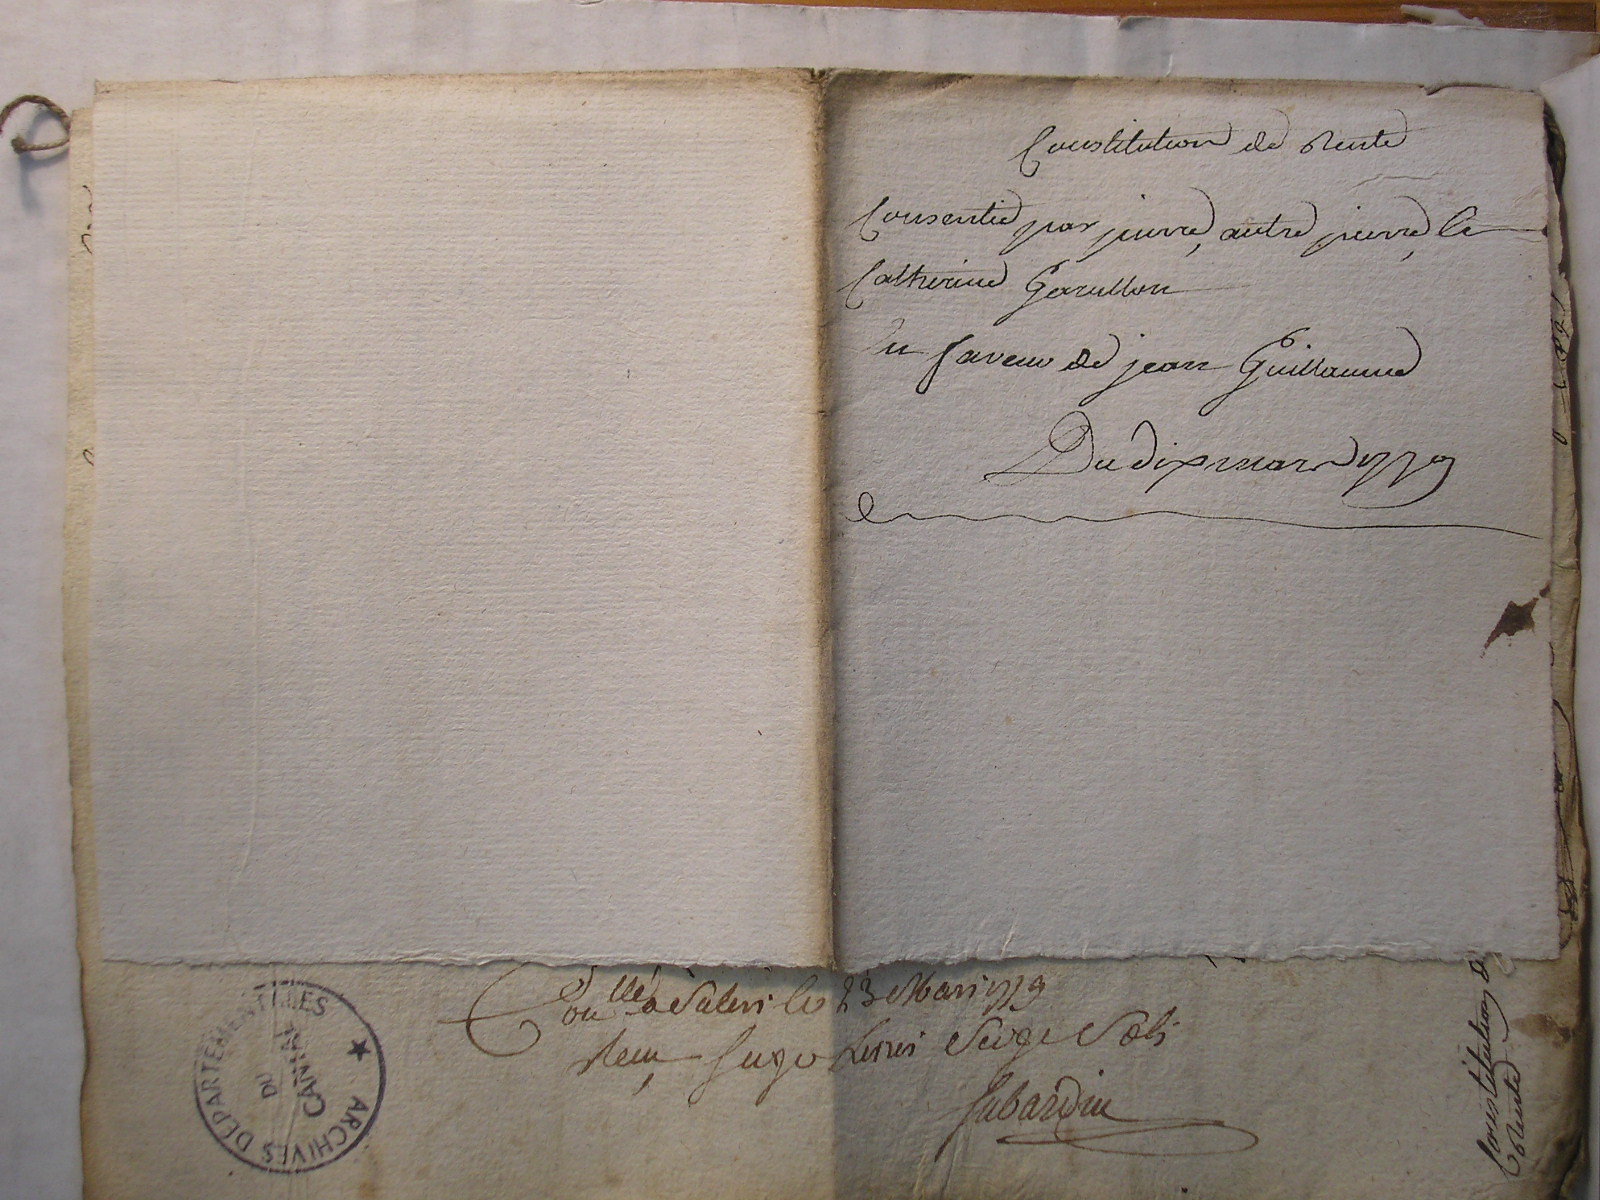 Constitution de Rente
Consentie par pierre, autre pierre, &
Catherine Garullon
En faveur de jean Guillaume
Du dix mars 1779
Con.llé à Salers le 23 Mars 1779
Reçu
Sabardin
Constitution de
Rente
ARCHIVES DÉPARTEMENTALES
DU
CANTAL